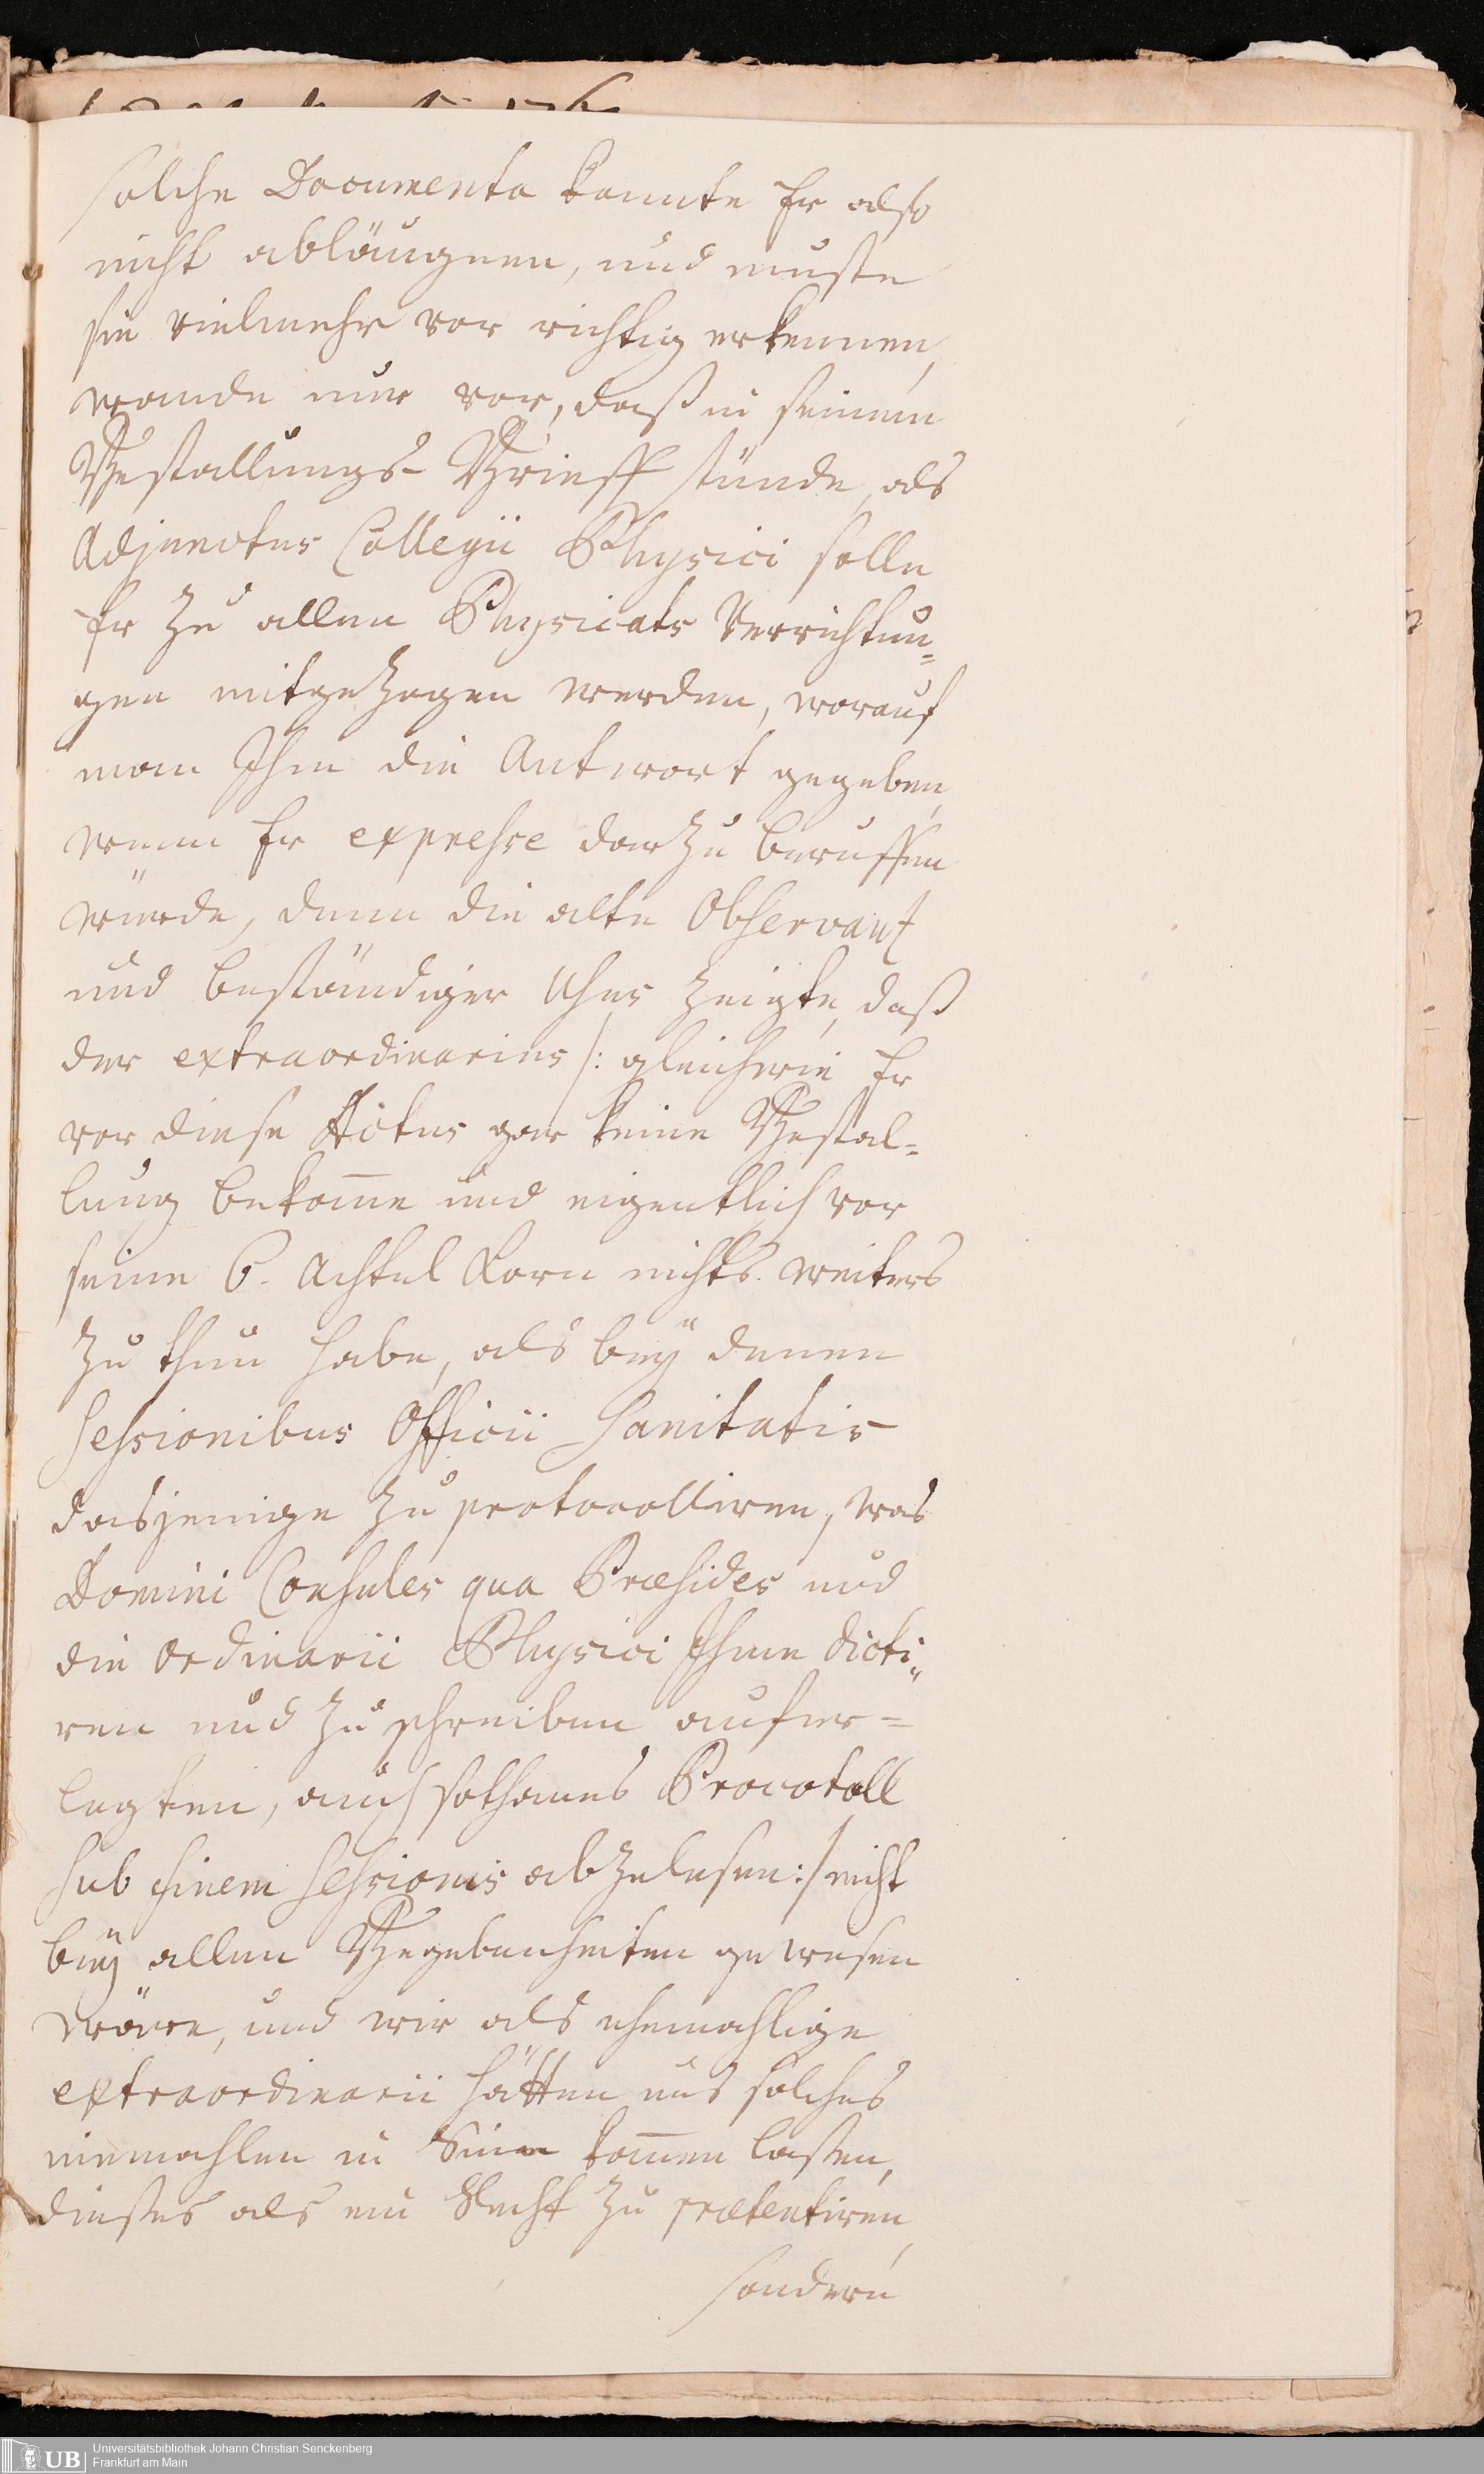 solche Documenta konnte Er also
nicht abläugnen, und muste
sie vielmehr vor richtig erkennen,
wande nur vor, daß in seinem
Bestallungs-Brieff stünde, als
Adjunctus Collegii Physici solle
Er zu allen Physicats Verrichtun=
gen mitgezogen werden, worauf
man Ihm die Antwort gegeben,
wenn Er expresse darzu beruffen
würde, denn die alte Observantz
und beständiger Usus zeigte, daß
der extraordinarius /: gleichwie Er
vor diese Actus gar keine Bestal=
lung bekom̄e und eigentlich vor
seine 6. Achtel Korn nichts weiters
zu thun habe, als beÿ denen
Sessionibus Officii Sanitatis
dasjenige zu protocolliren, was
Domini Consules qua Præsides und
die Ordinarii Physici Ihme dicti=
ren und zu schreiben aufer=
legten, auch sothanes Procotoll
sub finem Sessionis abzulesen :/ nicht
beÿ allen Begebenheiten gewesen
wäre, und wir als ehemahlige
extraordinarii hätten uns solches
niemahlen in Sinn kom̄en laßen,
dießes als ein Recht zu prætentiren,
sondern
Universitätsbibliothek Johann Christian Senckenberg
Frankfurt am Main
UB